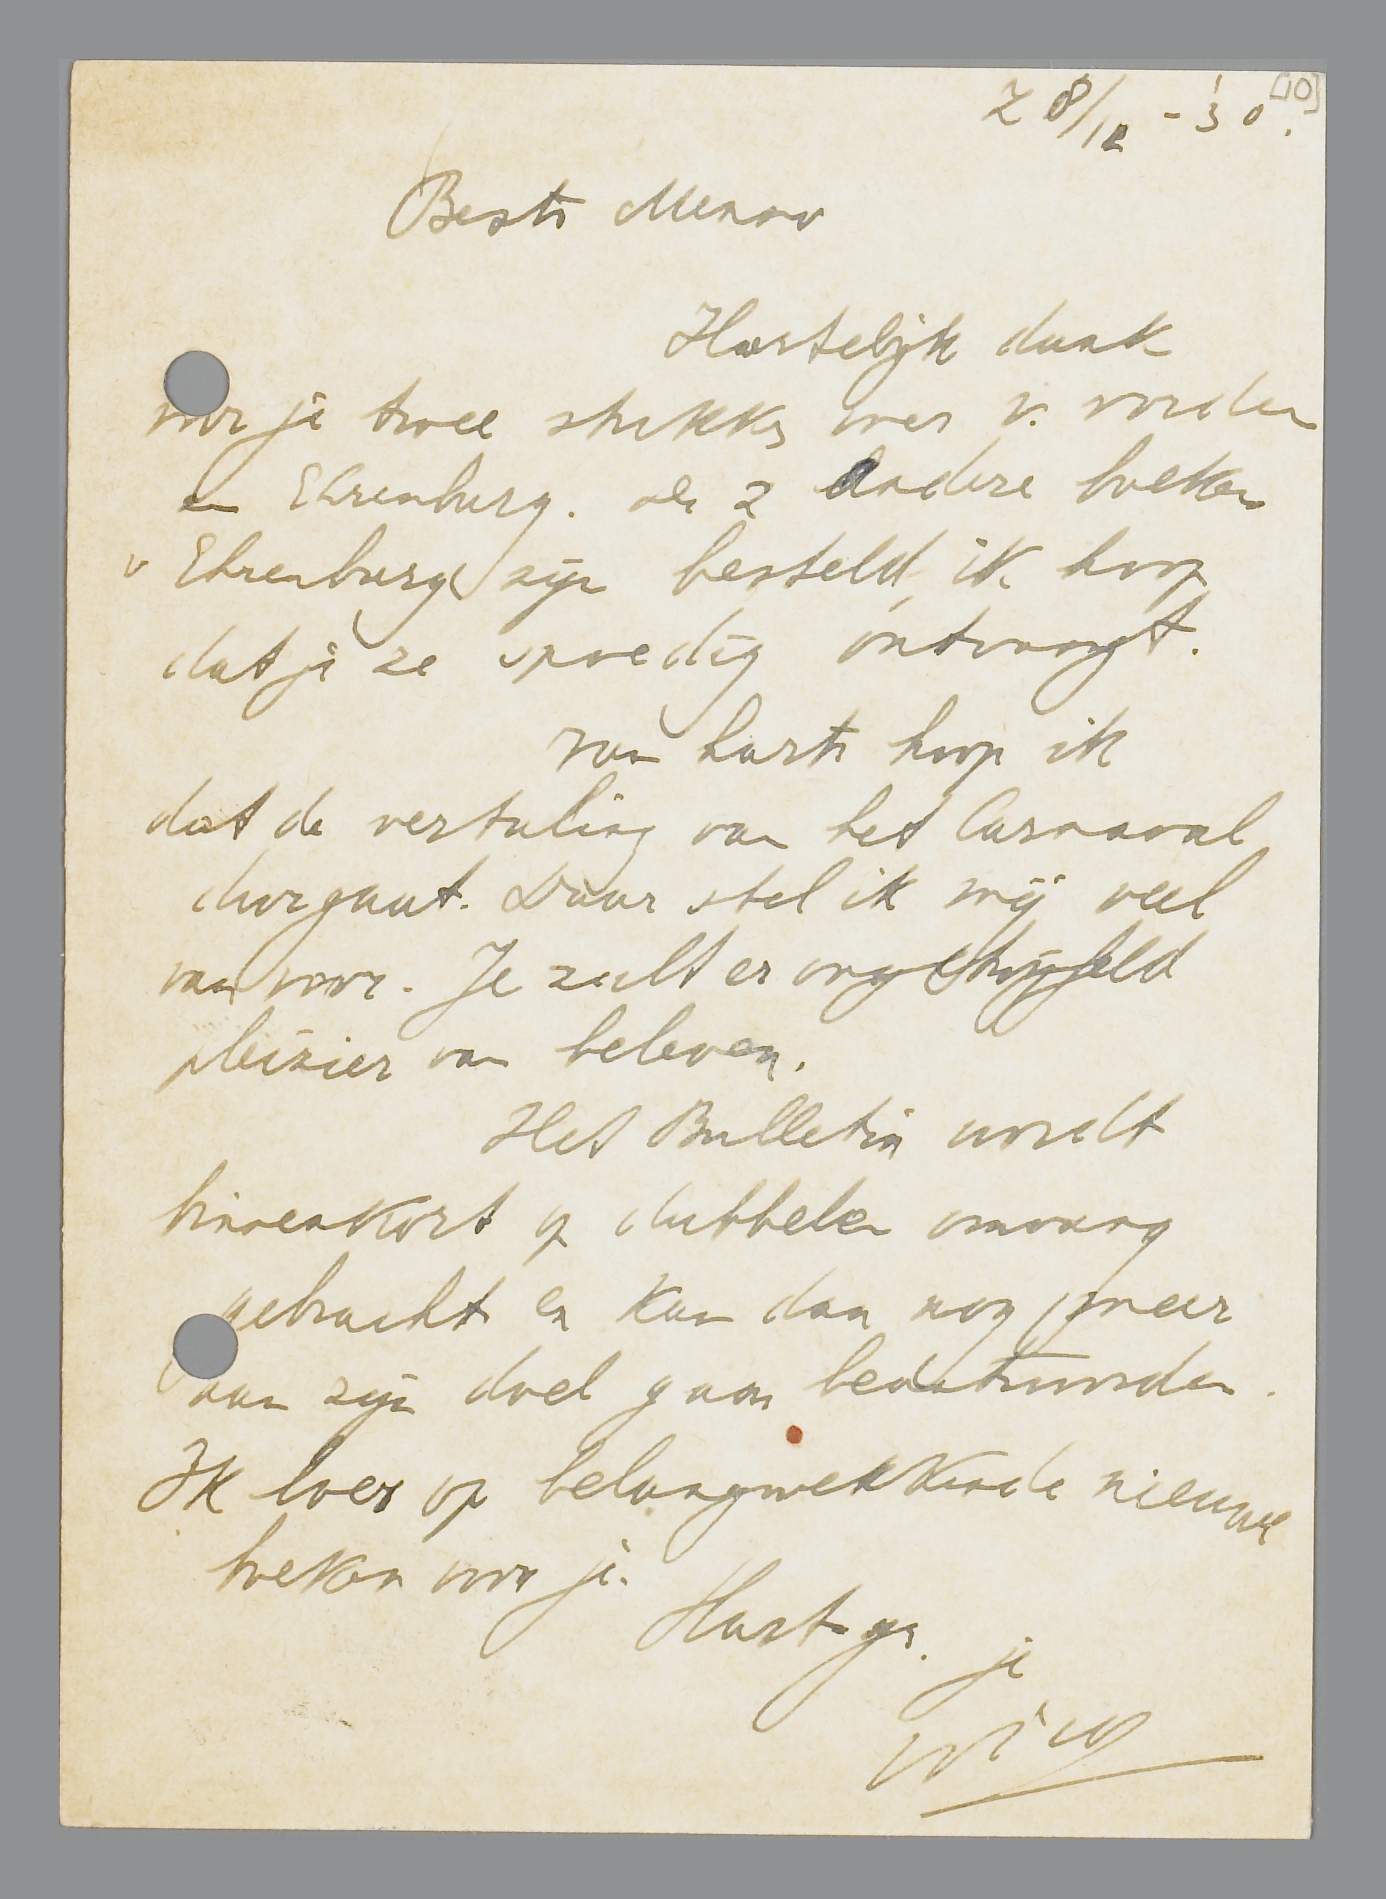 [10]
28/12 - '30.
Beste Menno
Hartelijk dank
voor je twee stukken over v. Vorden
en Ehrenburg. De 2 andere boeken
v Ehrenburg zijn besteld, ik hoop
dat je ze spoedig ontvangt.
Van harte hoop ik
dat de vertaling van het Carnaval
doorgaat. Daar stel ik mij veel
van voor. Je zult er ongetwijfeld
pleizier van beleven.
Het Bulletin wordt
binnenkort op dubbelen omvang
gebracht en kan dan nog meer
aan zijn doel gaan beantwoorden.
Ik loer op belangwekkende nieuwe
boeken voor je.
Hart. gr. je